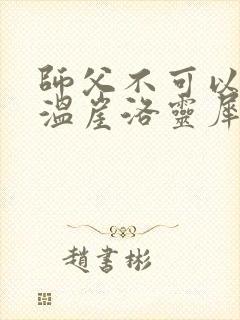 師父不可以
溫崖洛靈犀
趙書彬